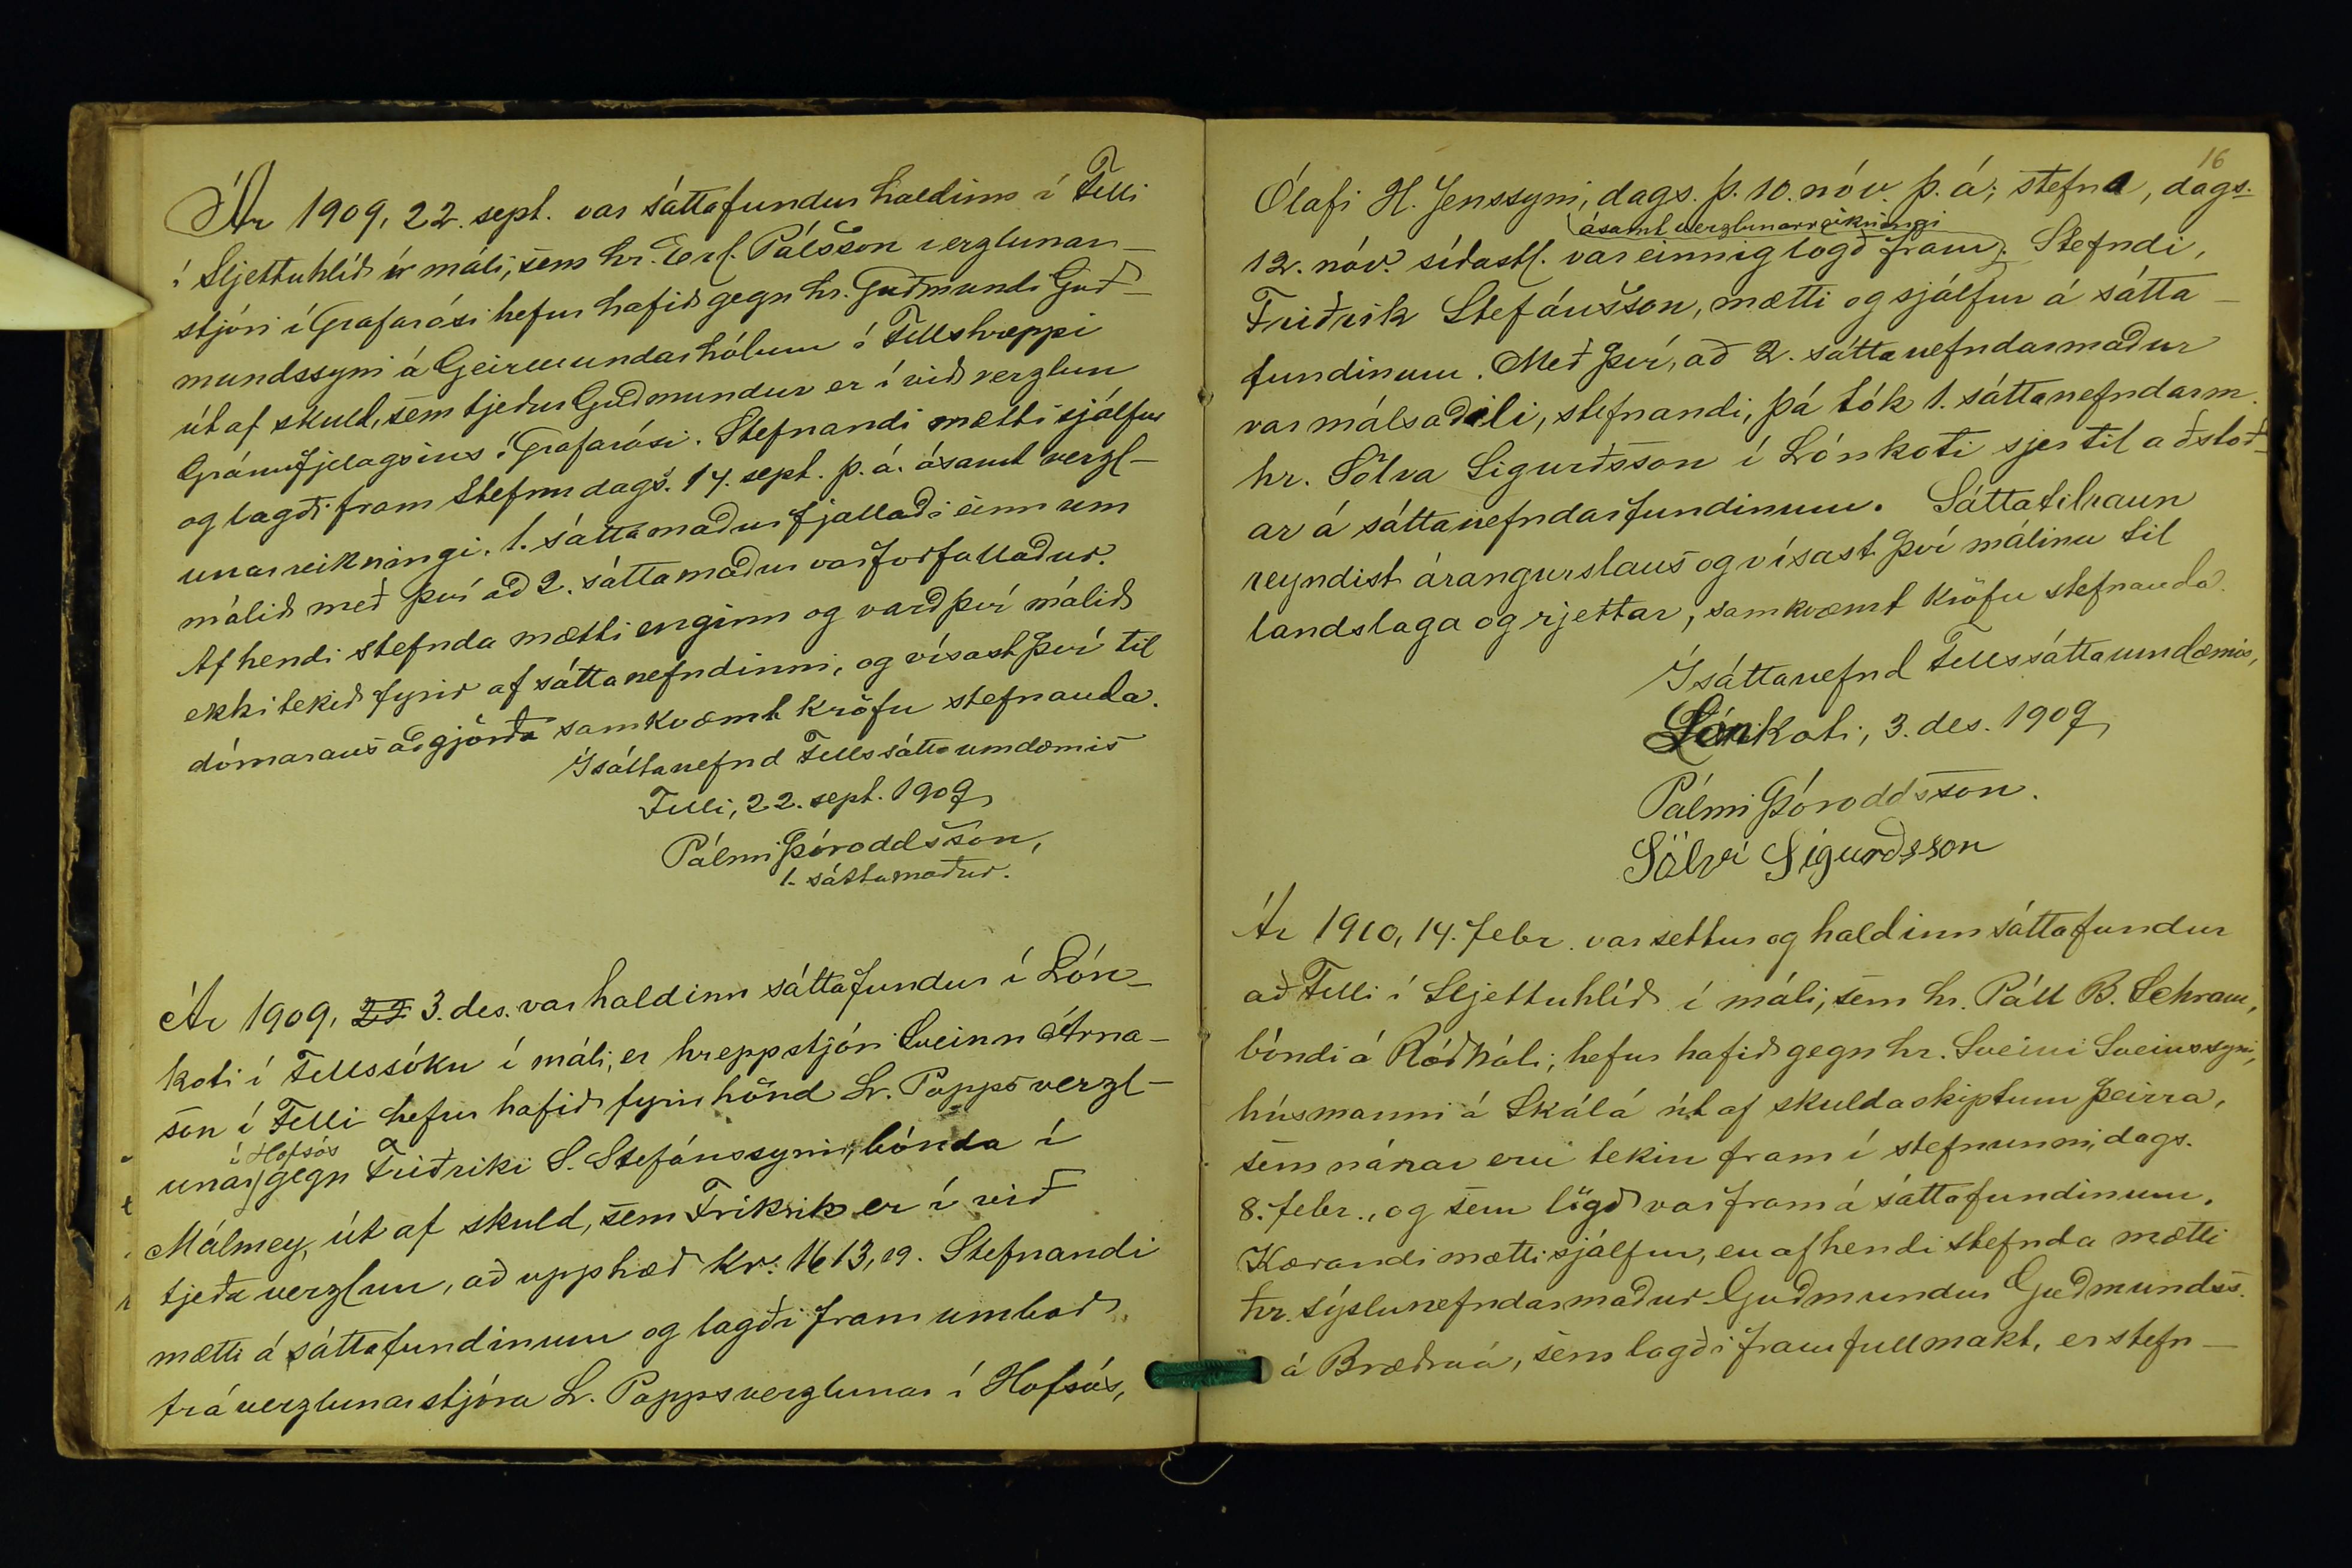 Ár 1909, 22. sept. var sáttafundur haldinn í Felli
í Sljettuhlíð í máli, sem hr. Erl. Pálsson verzlunar-
stjóri í Grafarósi hefur hafið gegn hr. Guðmundi Guð-
mundssyni á Geirmundarhólum í Fellshreppi
út af skuld, sem tjeður Guðmundur er í við verzlun
Gránufjelagsins í Grafarósi. Stefnandi mætti sjálfur
og lagði fram Stefnu dags. 14. sept. þ. á. ásamt verzl-
unarreikningi. 1. sáttamaður fjallaði einn um
málið með því að 2. sáttamaður var forfallaður.
Af hendi stefnda mætti enginn og varð því málið
ekki tekið fyrir af sáttanefndinni, og vísast því til
dómarans aðgjörða samkvæmt kröfu stefnanda.
Í sáttanefnd Fellssáttaumdæmis
Felli, 22. sept. 1909
Pálmi Þóroddsson,
1. sáttamaður.
Ár 1909, 22 3. des. var haldinn sáttafundur í Lón-
koti í Fellssókn í máli, er hreppstjóri Sveinn Árna-
son í Felli hefur hafið fyrir hönd L. Popps verzl-
í Hofsós
unar gegn Friðriki S. Stefánssyni, bónda í
Málmey, út af skuld, sem Frikrik er í við
tjeða verzlun, að upphæð kr: 1613,19. Stefnandi
mætti á sáttafundinum og lagði fram umboð
frá verzlunarstjóra L. Poppsverzlunar í Hofsós,
16
Ólafi H. Jenssyni, dags. þ. 10. nóv. þ. á; stefna, dags.
ásamt verzlunarreikningi
12. nóv. síðastl. var einnig lögð fram. Stefndi,
Friðrik Stefánsson, mætti og sjálfur á sátta-
fundinum. Með því, að 2. sáttanefndarmaður
var málsaðili, stefnandi, þá tók 1. sáttanefndarm.
hr. Sölva Sigurðsson í Lónkoti sjer til aðstoð-
ar á sáttanefndarfundinum. Sáttatilraun
reyndist árangurslaus og vísast því málinu til
landslaga og rjettar, samkvæmt kröfu stefnanda.
Í sáttanefnd Fellssáttaumdæmis,
Lónkoti, 3. des. 1909
Pálmi Þóroddsson.
Sölvi Sigurðsson
Ár 1910, 14. febr. var settur og haldinn sáttafundur
að Felli í Sljettuhlíð í máli, sem hr. Páll B. Schram,
bóndi á Róðhóli, hefur hafið gegn hr. Sveini Sveinssyni,
húsmanni á Skálá út af skuldaskiptum þeirra,
sem nánar eru tekin fram í stefnunni, dags.
8. febr., og sem lögð var fram á sáttafundinum.
Kærandi mætti sjálfur, en af hendi stefnda mætti
hr. sýslunefndarmaður Guðmundur Guðmundss.
á Bræðraá, sem lagði fram fullmakt, er stefn-